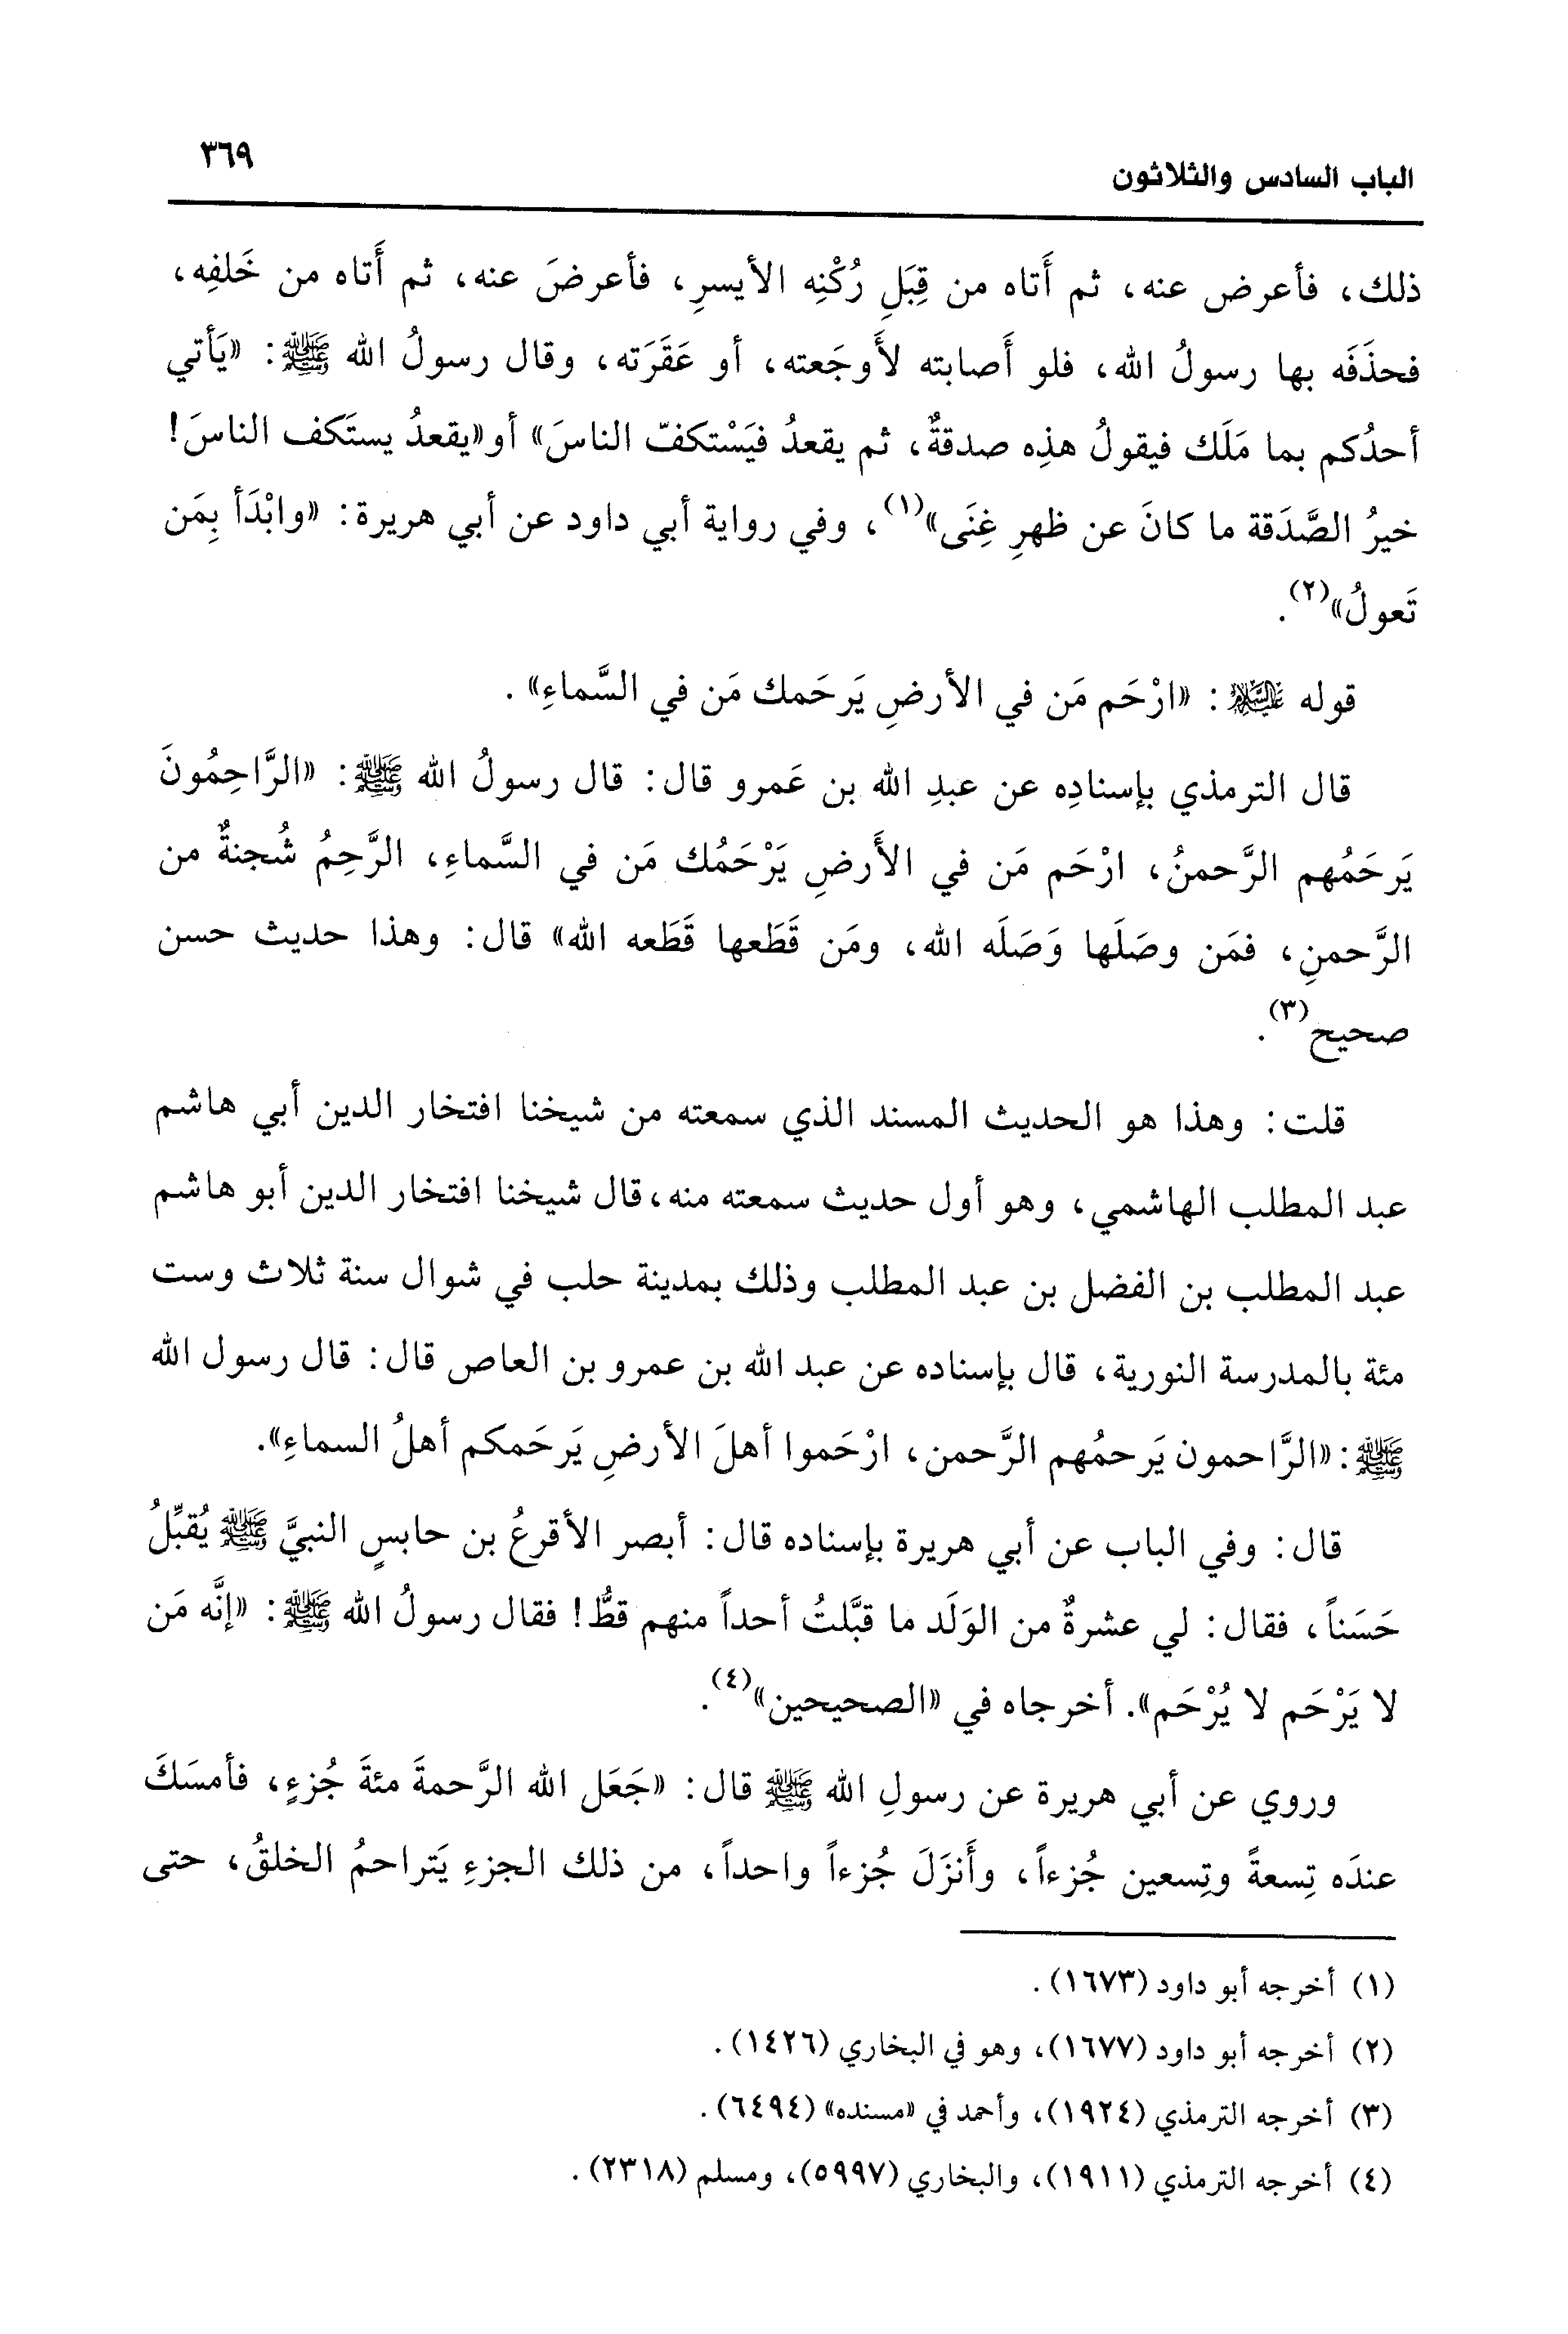 الباب السادس والثلاثون ٣٦٩
ذلك، فأعرض عنه، ثم أَتاه من قِبَلِ رُكْنِه الأيسرِ، فأعرضَ عنه، ثم أَتاه من خَلفِه،
فحذَفَه بها رسولُ الله، فلو أَصابته لأَوجَعته، أو عَقَرَته، وقال رسولُ الله ﷺ: «يَأتي
أحدُكم بما مَلَك فيقولُ هذِه صدقةٌ، ثم يقعدُ فيَسْتكفّ الناسَ» أو«يقعدُ يستَكف الناسَ!
خيرُ الصَّدَقة ما كانَ عن ظهرِ غِنَى»(١)، وفي رواية أبي داود عن أبي هريرة: «وابْدَأ بِمَن
تَعولُ»(٢).
قوله عليه السلام: «ارْحَم مَن في الأرضِ يَرحَمك مَن في السَّماءِ».
قال الترمذي بإسنادِه عن عبدِ الله بن عَمرو قال: قال رسولُ الله ﷺ: «الرَّاحِمُونَ
يَرحَمُهم الرَّحمنُ، ارْحَم مَن في الأَرضِ يَرْحَمُك مَن في السَّماءِ، الرَّحِمُ شُجنةٌ من
الرَّحمنِ، فمَن وصَلَها وَصَلَه الله، ومَن قَطَعها قَطَعه الله» قال: وهذا حديث حسن
صحيح(٣).
قلت: وهذا هو الحديث المسند الذي سمعته من شيخنا افتخار الدين أبي هاشم
عبد المطلب الهاشمي، وهو أول حديث سمعته منه،قال شيخنا افتخار الدين أبو هاشم
عبد المطلب بن الفضل بن عبد المطلب وذلك بمدينة حلب في شوال سنة ثلاث وست
مئة بالمدرسة النورية، قال بإسناده عن عبد الله بن عمرو بن العاص قال: قال رسول الله
ﷺ:«الرَّاحمون يَرحمُهم الرَّحمن، ارْحَموا أهلَ الأرضِ يَرحَمكم أهلُ السماءِ».
قال: وفي الباب عن أبي هريرة بإسناده قال: أبصر الأقرعُ بن حابسٍ النبيَّ ﷺ يُقبِّلُ
حَسَناً، فقال: لي عشرةٌ من الوَلَد ما قبَّلتُ أحداً منهم قطُّ! فقال رسولُ الله ﷺ: «إنَّه مَن
لا يَرْحَم لا يُرْحَم». أخرجاه في «الصحيحين»(٤).
وروي عن أبي هريرة عن رسولِ الله ﷺ قال: «جَعَل الله الرَّحمةَ مئةَ جُزءٍ، فأمسَكَ
عندَه تِسعةً وتِسعين جُزءاً، وأَنزَلَ جُزءاً واحداً، من ذلك الجزءِ يَتراحمُ الخلقُ، حتى
(١) أخرجه أبو داود (١٦٧٣).
(٢) أخرجه أبو داود (١٦٧٧)، وهو في البخاري (١٤٢٦).
(٣) أخرجه الترمذي (١٩٢٤)، وأحمد في «مسنده» (٦٤٩٤).
(٤) أخرجه الترمذي (١٩١١)، والبخاري (٥٩٩٧)، ومسلم (٢٣١٨).